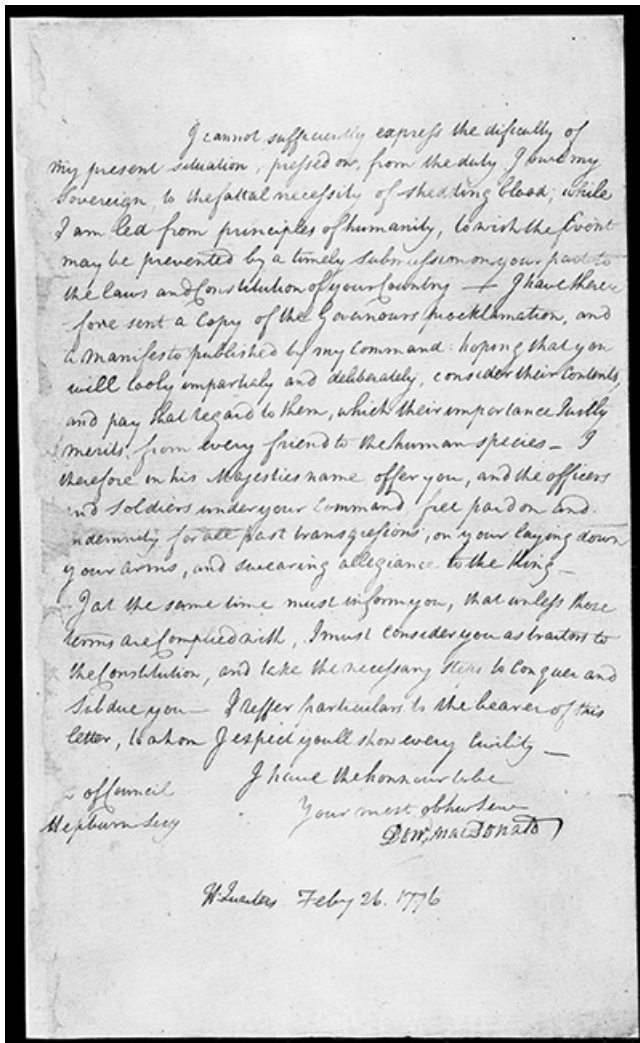 I cannot sufficiently express the dificulty of
my present situation, pressed on, from the duty I owe my
Sovereign, to the fattal necessity of shedding blood; while
I am led from principles of humanity, to wish the Event
may be prevented by a timely submission on your part to
the laws and Constitution of your Country — I have there
fore sent a Copy of the Governours procklamation, and
a manifesto published by my Command: hoping that you
will cooly impartialy and deliberately, consider their Contents,
and pay that regard to them, which their importance Justly
merits, from every friend to the human species — I
therefore in his Majesties name, offer you, and the officers
and soldiers under your Command, free pardon and
indemnity for all past transgresions, on your laying down
your arms, and swearing allegiance to the King —
I at the same time must inform you, that unless those
terms are Complied with, I must consider you as traitors to
the Constitution, and take the necessary steps to Conquer and
Subdue you — I reffer particulars to the bearer of this
letter, to whom I expect you'll show every Civility —
I have the honnour to be
of Council
Your most obt hu Serv
Hepburn Secy
Dond. MacDonald
Hd: Quarters Feby 26. 1776